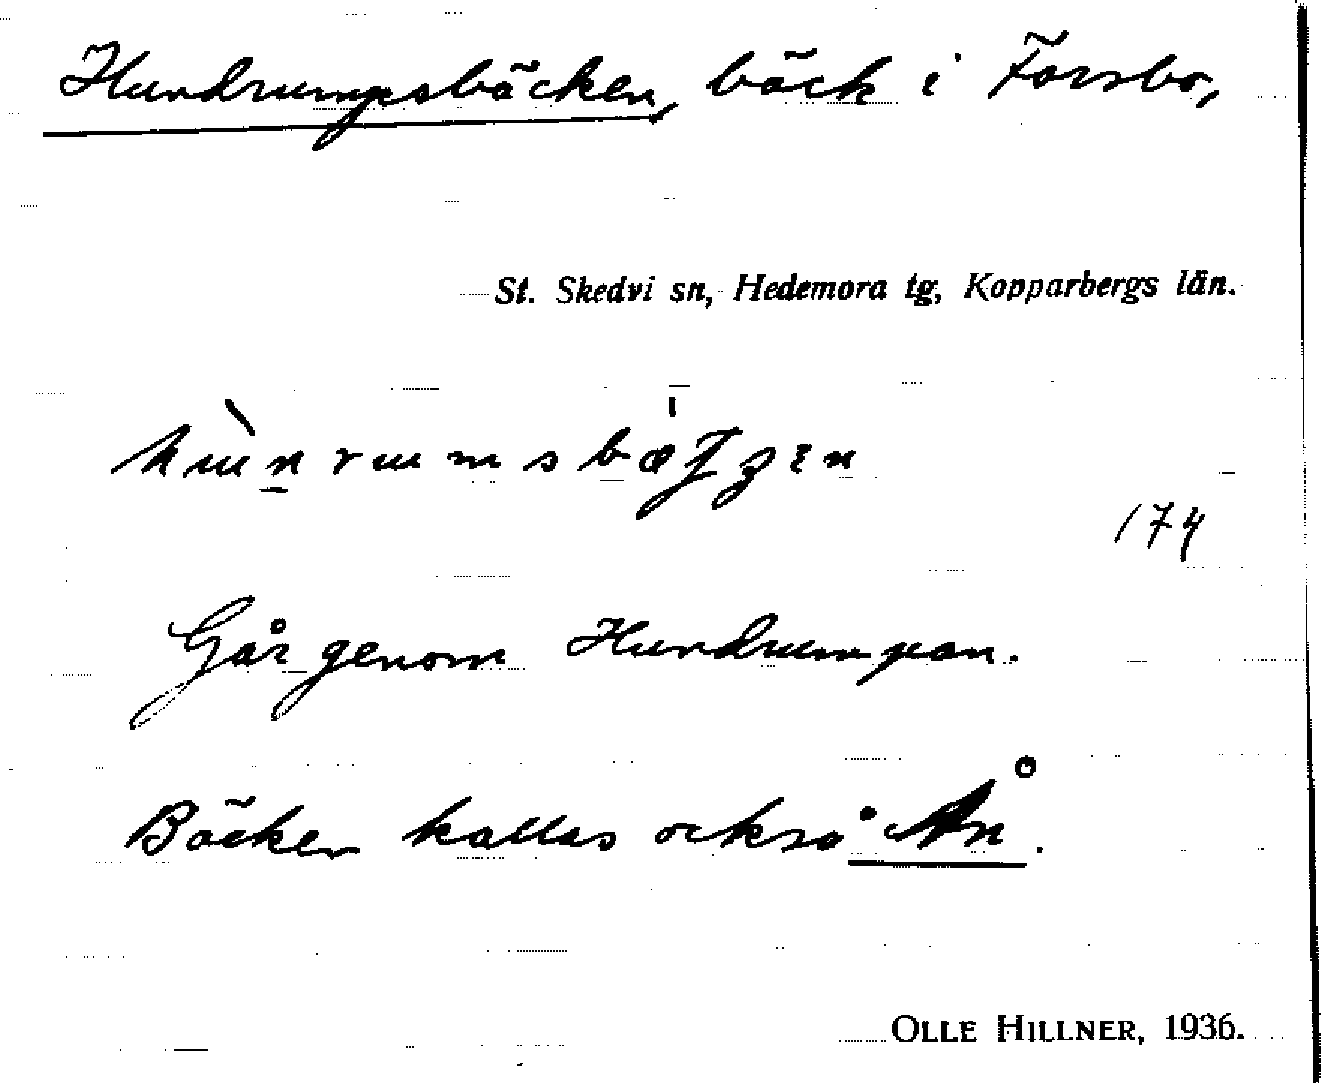 Hundrumpsbäcken, bäck i Forsbo,
St. Skedvi sn, Hedemora tg, Kopparbergs län.
174
Går genom Hundrumpan.
Bäcken kallas också Ån.
OLLE HILLNER, 1936.